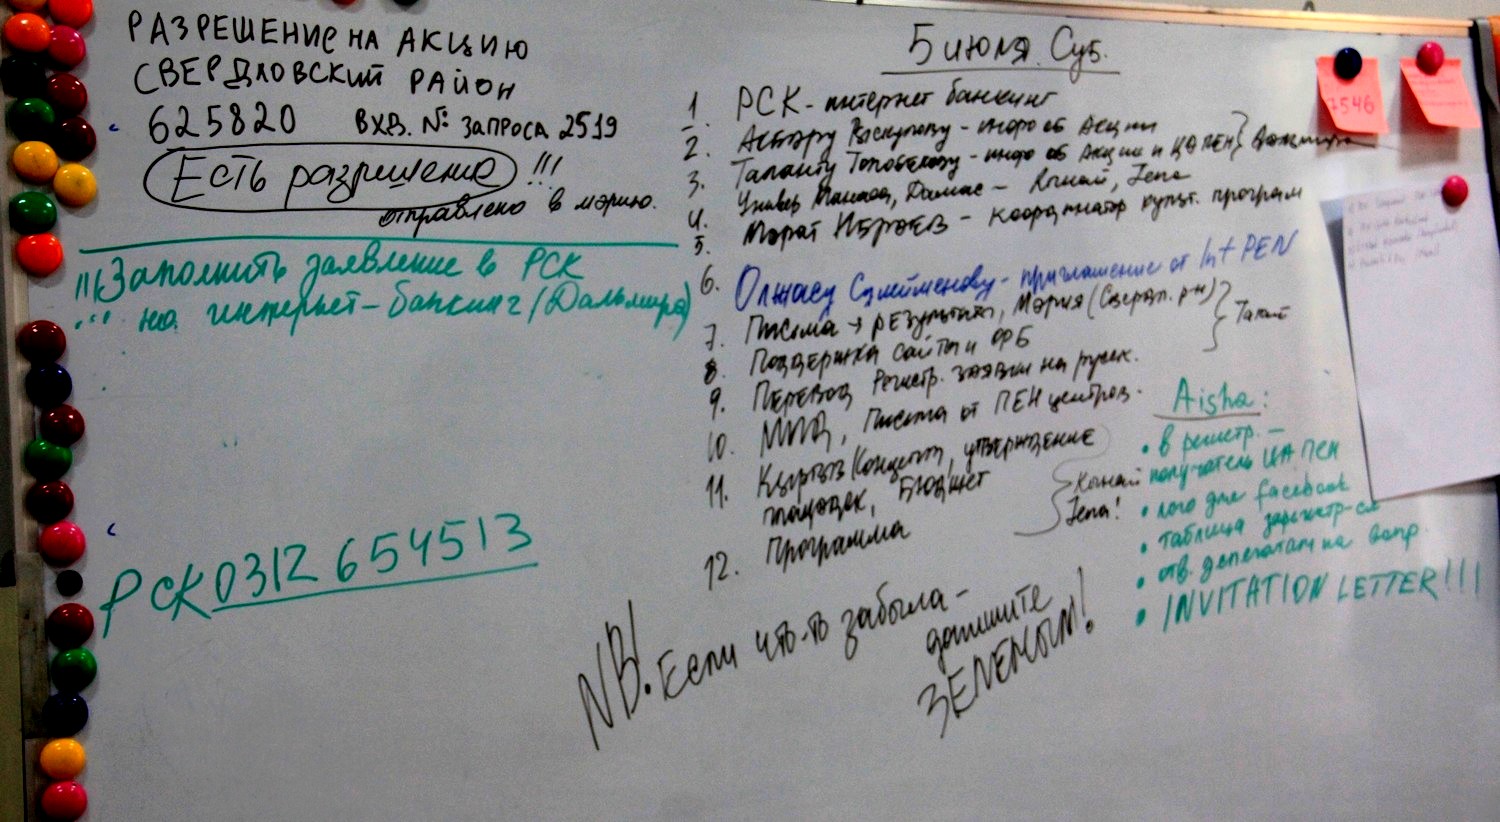 РАЗРЕШЕНИЕ НА АКЦИЮ
СВЕРДЛОВСКИЙ РАЙОН
625820 ВХД. №: ЗАПРОСА 2519
Есть разрешение !!!
отправлено в мэрию.
!!! Заполнить заявление в РСК
на интернет-банкинг (Дальмира)
РСК 0312 654513
5 июля. Суб.
1. РСК - интернет банкинг
2. - инфо об Акции
3. Таланту - инфо об Акции и ЦА ПЕН } Дальмира
4. Универ Манаса, Дамас –
5. Марат – координатор культ. программ
6. Олжасу Сулейменову - приглашение от Int PEN
7. Письма → результат, Мэрия (Свердл. р-н)
8. Поддержка сайта и ФБ
9. Перевод Регистр. заявки на русск.
10. МИД, Письма от ПЕН центров.
11. Кыргыз Концепт, утверждение
площадок, Бюджет
12. Программа
NB! Если что-то забыла -
допишите
ЗЕЛЕНЫМ!
Aisha:
• в регистр. –
получатель ЦА ПЕН
• лого для facebook
• таблица
• отв. делегатам на вопр.
• INVITATION LETTER!!!
7546